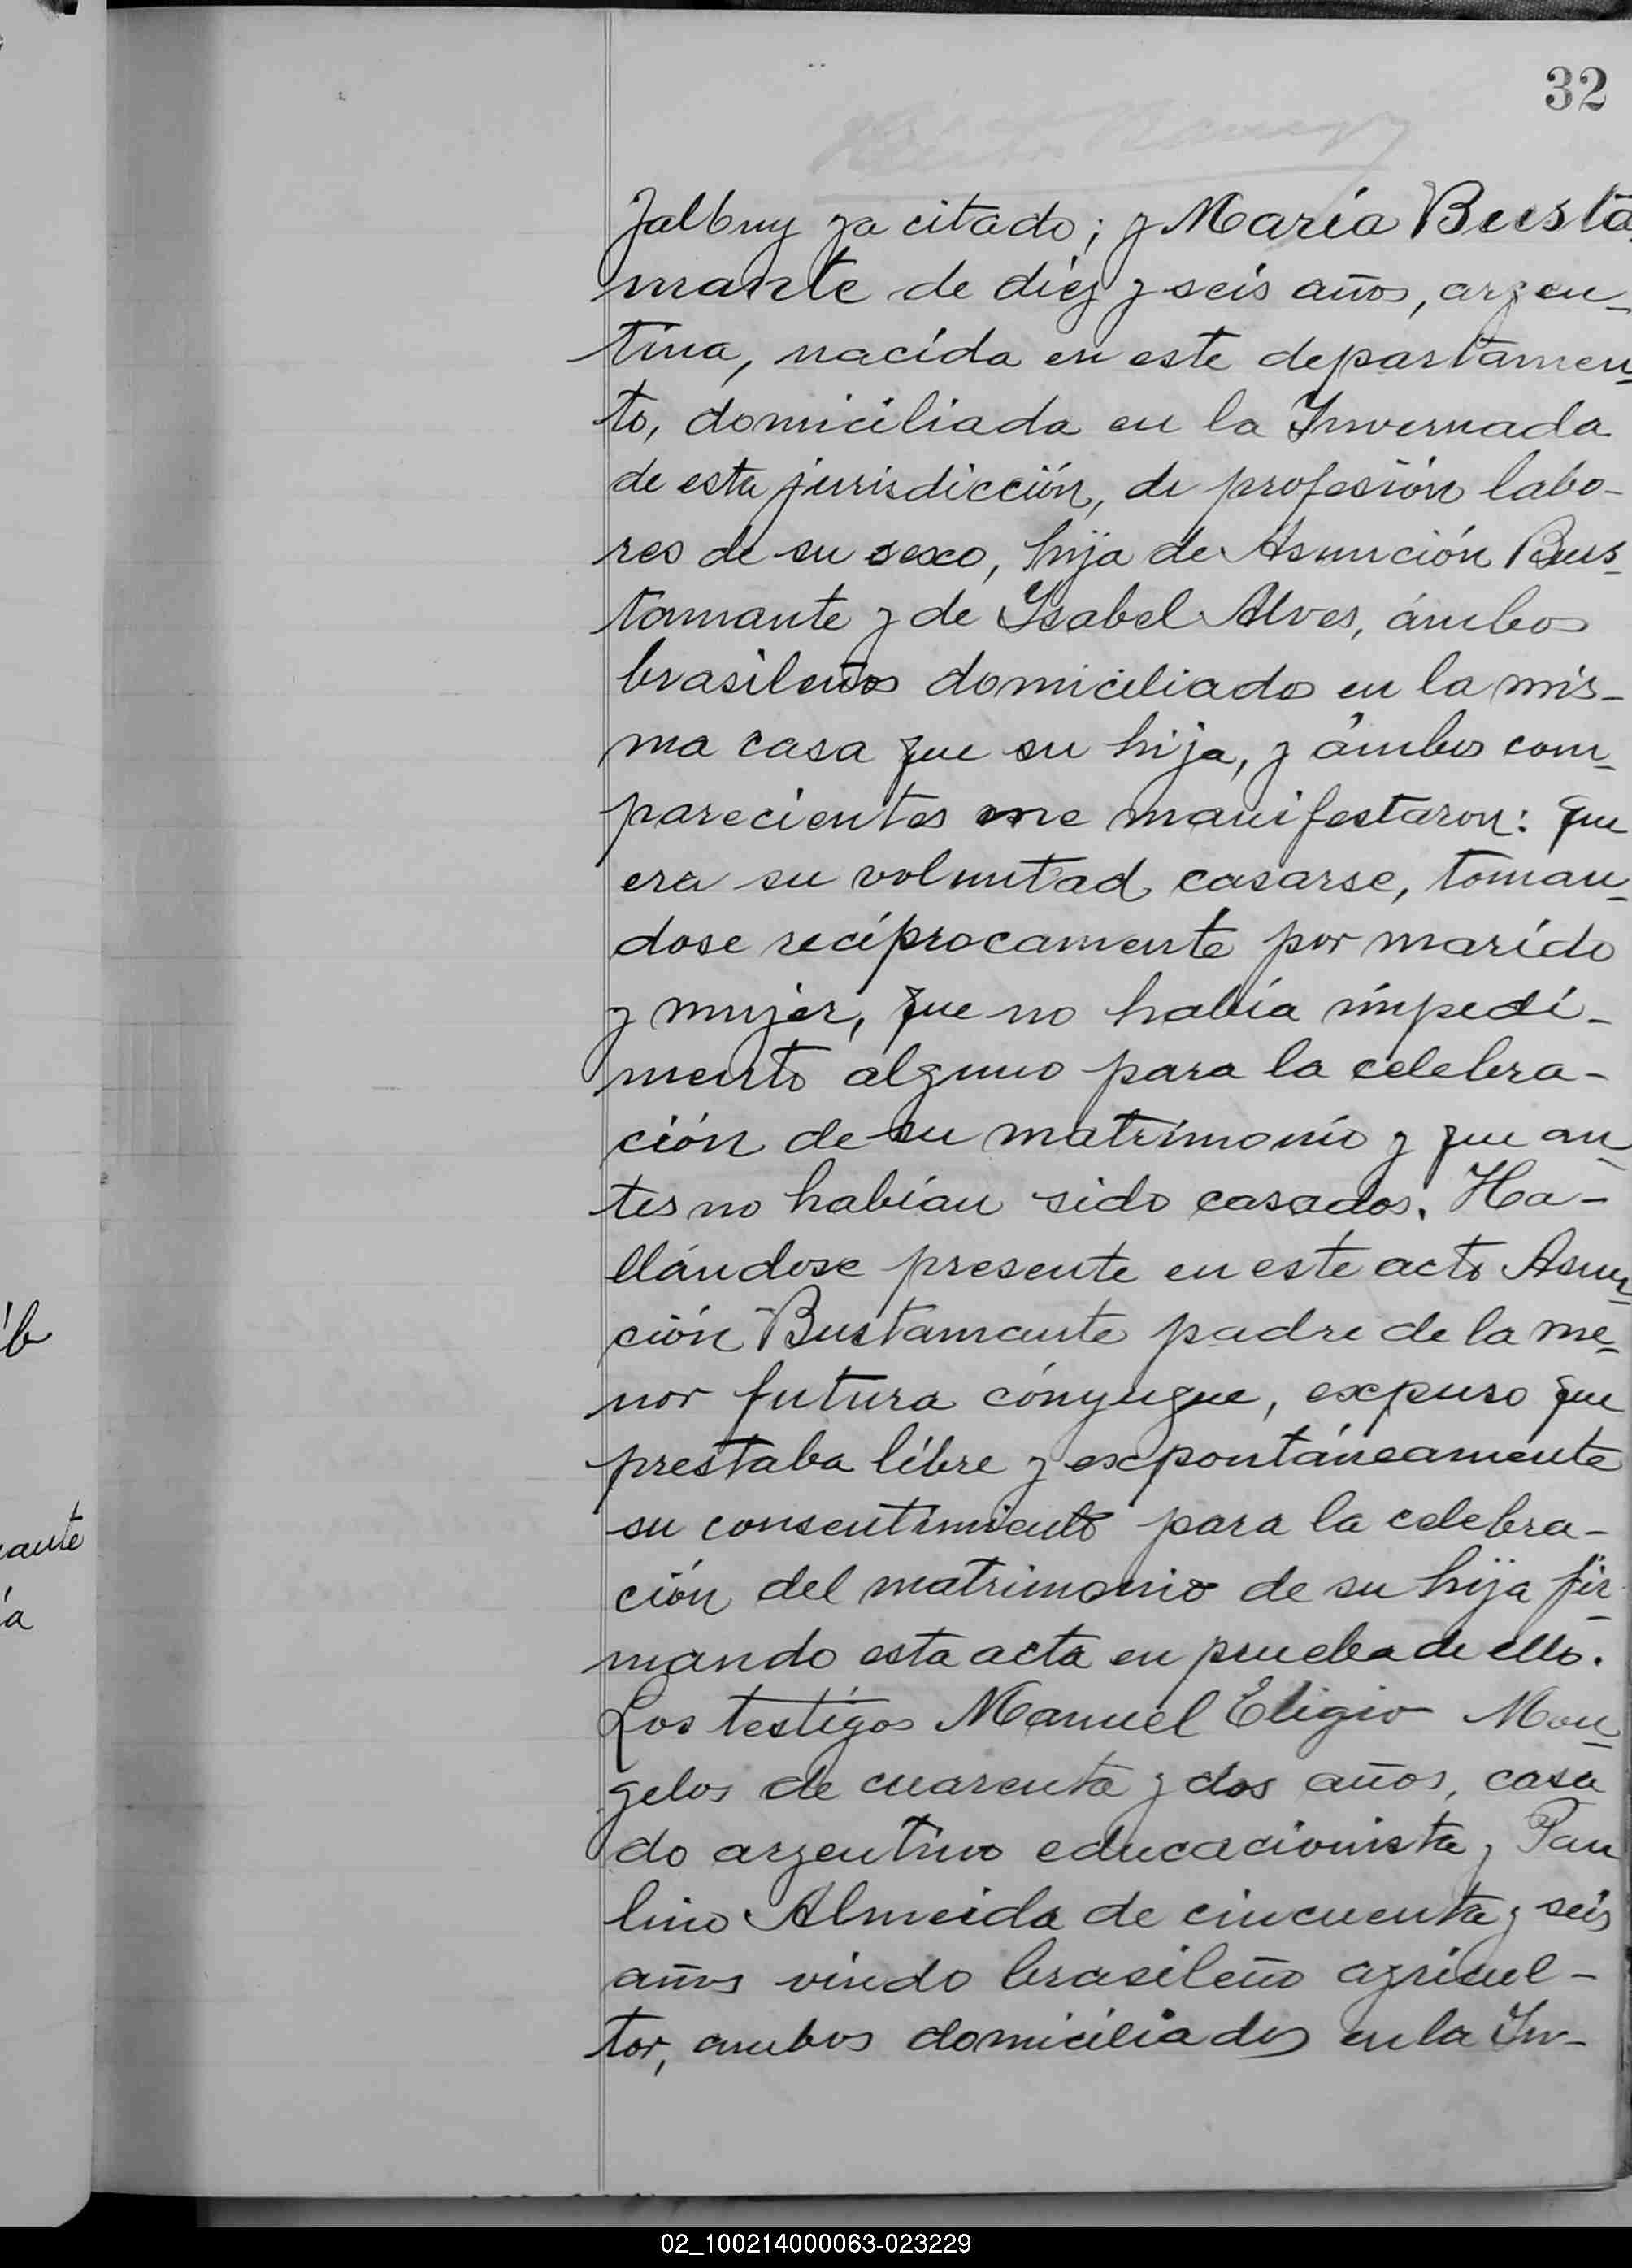 32
Jalbuy ya citado; y María Busta
mante de diez y seis años, argen_
tina, nacida en este departamen_
to, domiciliada en la Invernada
de esta jurisdicción, de profesión labo-
res de su sexo, hija de Asunción Bus_
tamante y de Ysabel Alves, ámbos
brasileños domiciliados en la mis-
ma casa que su hija, y ámbos com_
parecientes me manifestaron: que
era su voluntad casarse, toman_
dose recíprocamente por marido
y mujer, que no había impedi-
mento alguno para la celebra-
ción de su matrimonio y que an_
tes no habían sido casados. Ha-
llándose presente en este acto Asun_
ción Bustamante padre de la me_
nor futura cónyugue, expuso que
prestaba libre y expontáneamente
su consentimiento para la celebra-
ción del matrimonio de su hija fir_
mando esta acta en prueba de ello.
Los testigos Manuel Eligio Mon_
gelos de cuarenta y dos años, casa
do argentino educacionista y Pau
lino Almeida de cincuenta y seis
años viudo brasileño agricul-
tor, ambos domiciliados en la In-
ante
02_100214000063-023229